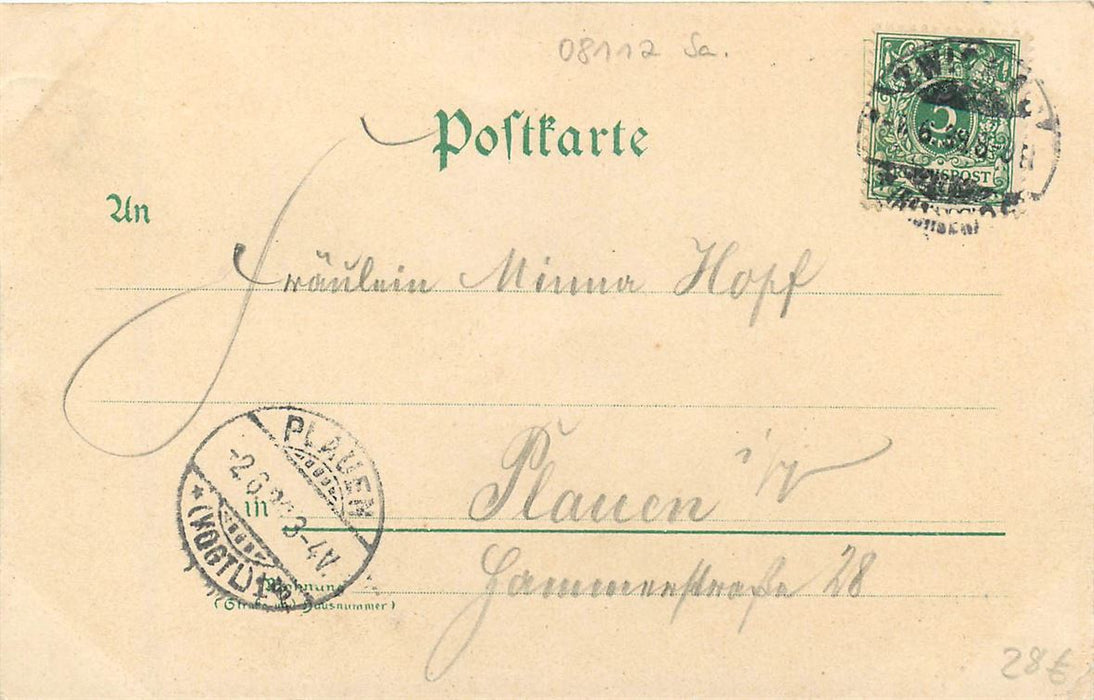 08112 Sa.
Postkarte
5
REICHSPOST
An
Fräulein Minna Hopf
PLAUEN
-2.6. 3-4V.
* (VOGTL.)
in Plauen i/V
Wohnung
(Straße und Hausnummer)
Hammerstraße 28
28€